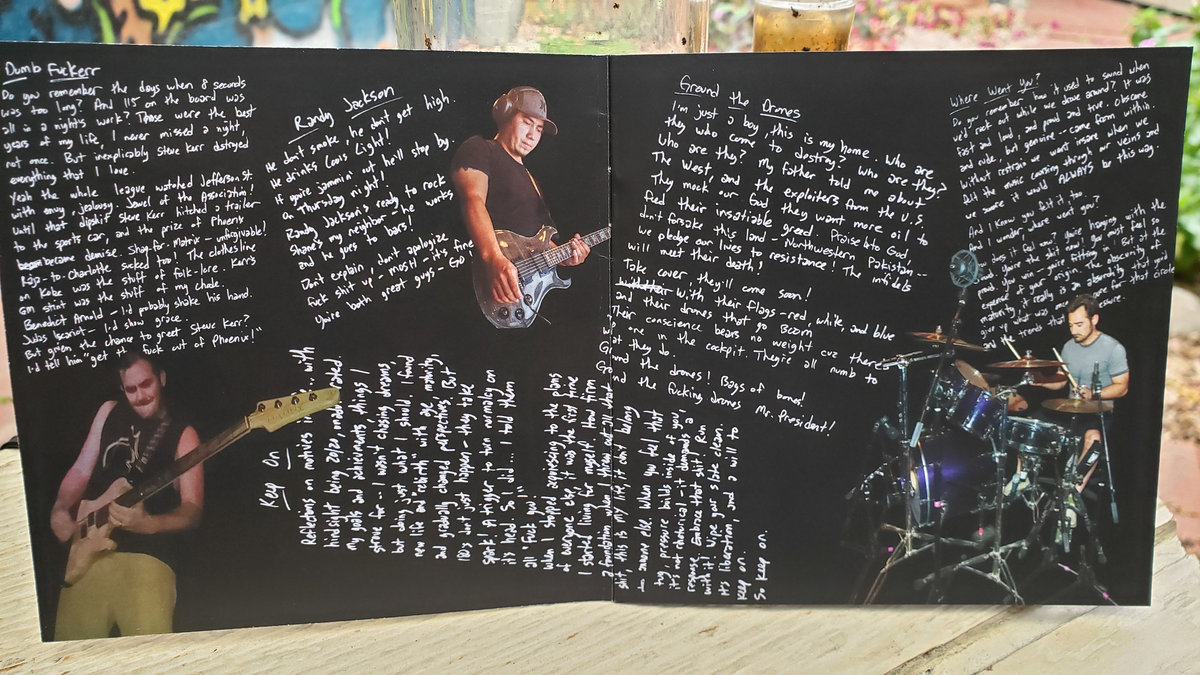 Dumb Fuckerr
Do you remember the days when 8 seconds
was too long? And 115 on the board was
all in a night's work? Those were the best
years of my life, I never missed a night,
not once. But inexplicably Steve Kerr dstroyed
everything that I love.
Yeah the whole league watched Jefferson St.
with envy, jealousy - Jewel of the Association!
Until that dipshit Steve Kerr hitched a trailer
to the sports car, and the prize of Phoenix
became demise. Shaq-for-Matrix - unforgivable!
Raja-to-Charlotte sucked too! The clothesline
on Kobe was the stuff of folk-lore. Kerr's
GM stint was the stuff of my choke.
Benedict Arnold - I'd probly shake his hand.
Judas Iscariot - I'd show grace.
But given the chance to greet Steve Kerr?
I'd tell him "get the fuck out of Phoenix!"
Randy Jackson
He don't smoke, he don't get high.
He drinks Coors Light!
If you're jammin out he'll stop by
on Thursday night!
Randy Jackson's ready to rock
Shane's my neighbor - he works
and he goes to bars!
Don't explain, don't apologize
fuck shit up - most - it's fine
You're both great guys - Go!
Key On
Reflections on motives with
hindsight being 20/20, asked
my goals and achievements, things I
strove for.. I wasn't chasing dreams,
but doing just what I should. I found
new life and "rebirth" with age, maturity,
and gradually changed perspectives. But
101s don't just happen - they take
spark! A trigger to turn normalcy on
it's head. So I did... I told them
all "Fuck you!"
When I stopped appeasing to the plans
of everyone else, it was the first time
I started living for myself. How firm
a foundation when I threw out all about
shit, this is my life, it don't belong
to anyone else. When you feel that
tug, pressure builds inside of you,
it's not rhetorical - it demands a
response. Embrace that shit! Run
with it. Wipe your slate clean.
It's liberation, and a will to
Key on.
So Key on.
Ground the Drones
I'm just a boy, this is my home. Who are
they who come to destroy? Who are they?
Who are thy? My father told me about
The West, and the exploiters from the U.S.
They mock our God they want more oil to
feed their insatiable greed. Praise bto God,
don't forsake this land - Northwestern Pakistan --
we pledge our lives to resistance! The infidels
will meet their death!
Take cover they'll come soon!
With their flags - red, white, and blue
and their drones that go BOOM
Their conscience bears no weight cuz there's
no one in the cockpit. They're all numb to
what they do.
Ground the drones! Bags of bones!
Ground the fucking drones Mr. President!
Where Went You?
Do you remember how it used to sound when
we'd rock out while we drove around? It was
fast and loud, and proud and true. Obscene
and rude, but genuine - came form within.
Without restraint we went insane when we
felt the music coursing through our veins and
we swore it would ALWAYS be this way.
And I know you felt it, too.
And I wonder, where went you?